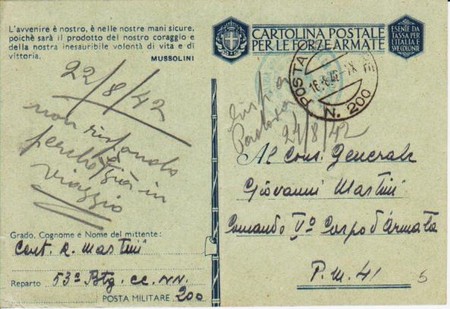 L'avvenire è nostro, è nelle nostre mani sicure,
poichè sarà il prodotto del nostro coraggio e
della nostra inesauribile volontà di vita e di
vittoria.
MUSSOLINI
22/8/42
non rispondo
perchè già in
viaggio
Grado, Cognome e Nome del mittente:
Cent. R. Martini
Reparto 53ª Btg. CC. NN.
POSTA MILITARE 200
CARTOLINA POSTALE
PER LE FORZE ARMATE
ESENTE DA
TASSA PER
L'ITALIA E
SUE COLONIE
POSTA
N. 200
24/8/42
Al Cons. Generale
Giovanni Martini
Comando Vº Corpo d'Armata
P.M. 41
5